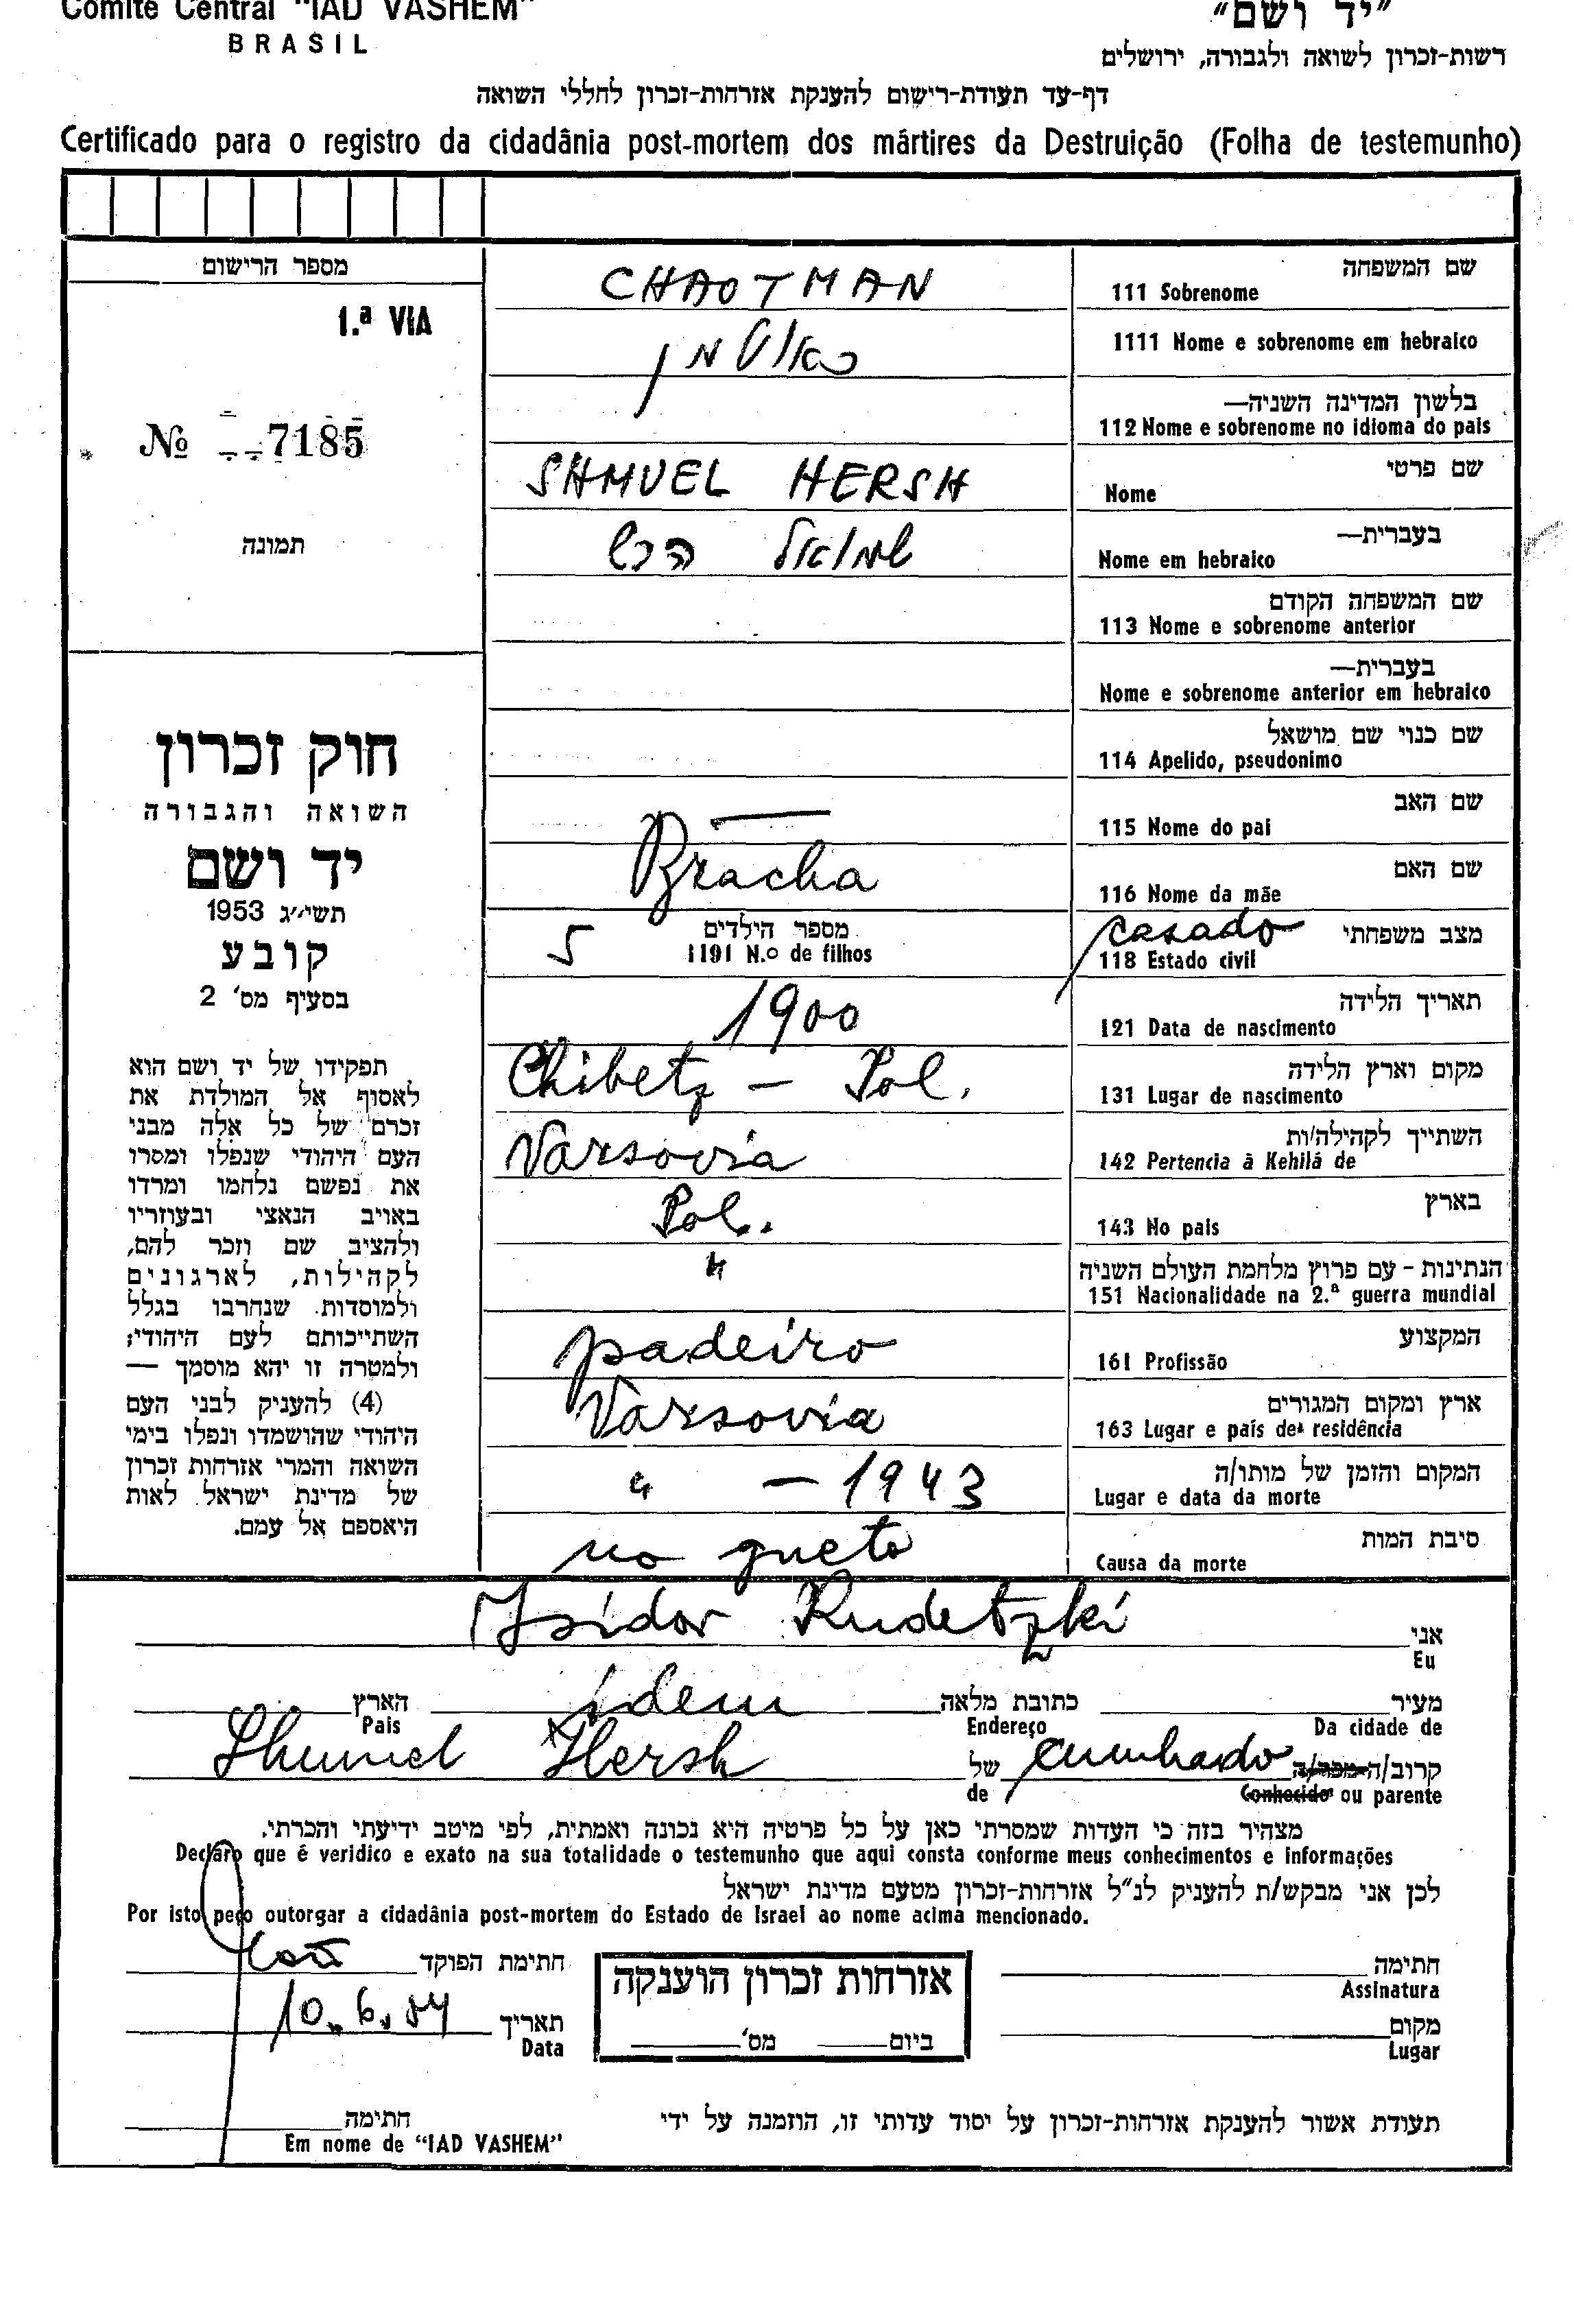 Comité Central "IAD VASHEM"
BRASIL
"יד ושם"
רשות-זכרון לשואה ולגבורה, ירושלים
דף-עד תעודת-רישום להענקת אזרחות-זכרון לחללי השואה
Certificado para o registro da cidadânia post-mortem dos mártires da Destruição (Folha de testemunho)
מספר הרישום
1.ª VIA
№ 7185
תמונה
חוק זכרון
השואה והגבורה
יד ושם
תשי״ג 1953
קובע
בסעיף מס' 2
תפקידו של יד ושם הוא
לאסוף אל המולדת את
זכרם של כל אלה מבני
העם היהודי שנפלו ומסרו
את נפשם נלחמו ומרדו
באויב הנאצי ובעוזריו
ולהציב שם וזכר להם,
לקהילות, לארגונים
ולמוסדות שנחרבו בגלל
השתייכותם לעם היהודי;
ולמטרה זו יהא מוסמך —
(4) להעניק לבני העם
היהודי שהושמדו ונפלו בימי
השואה והמרי אזרחות זכרון
של מדינת ישראל לאות
היאספם אל עמם.
שם המשפחה
111 Sobrenome CHAOTMAN
1111 Nome e sobrenome em hebraico
בלשון המדינה השניה—
112 Nome e sobrenome no idioma do pais
שם פרטי
Nome SHMUEL HERSH
בעברית—
Nome em hebraico שמואל הרש
שם המשפחה הקודם
113 Nome e sobrenome anterior
בעברית—
Nome e sobrenome anterior em hebraico
שם כנוי שם מושאל
114 Apelido, pseudonimo
שם האב
115 Nome do pai —
שם האם
116 Nome da mãe Bracha
מצב משפחתי
118 Estado civil casado
מספר הילדים
1191 N.o de filhos 5
תאריך הלידה
121 Data de nascimento 1900
מקום וארץ הלידה
131 Lugar de nascimento Chibetz — Pol.
השתייך לקהילה/ות
142 Pertencia à Kehilá de Varsovia
בארץ
143 No pais Pol.
הנתינות - עם פרוץ מלחמת העולם השניה
151 Nacionalidade na 2.ª guerra mundial "
המקצוע
161 Profissão padeiro
ארץ ומקום המגורים
163 Lugar e país de residência Varsovia
המקום והזמן של מותו/ה
Lugar e data da morte " — 1943
סיבת המות
Causa da morte no gueto
אני
Eu Isidor Rudetzki
מעיר כתובת מלאה idem הארץ
Da cidade de Endereço Pais
קרוב/ה מכר/ה cunhado של Shmuel Hersh
Conhecido ou parente de
מצהיר בזה כי העדות שמסרתי כאן על כל פרטיה היא נכונה ואמתית, לפי מיטב ידיעתי והכרתי.
Declaro que é veridico e exato na sua totalidade o testemunho que aqui consta conforme meus conhecimentos e informações
לכן אני מבקש/ת להעניק לנ"ל אזרחות-זכרון מטעם מדינת ישראל
Por isto peço outorgar a cidadânia post-mortem do Estado de Israel ao nome acima mencionado.
חתימה
Assinatura
מקום
Lugar
אזרחות זכרון הוענקה
ביום מס'
חתימת הפוקד
תאריך 10.6.84
Data
תעודת אשור להענקת אזרחות-זכרון על יסוד עדותי זו, הוזמנה על ידי
חתימה
Em nome de "IAD VASHEM"